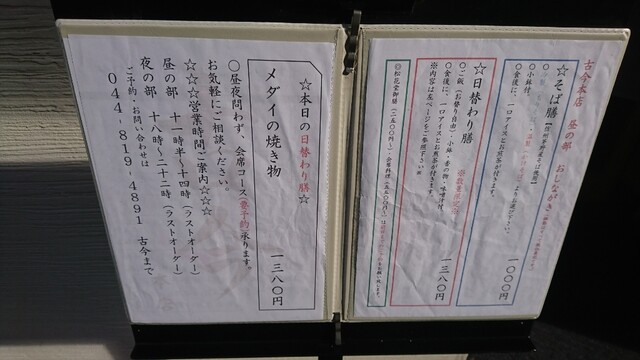 古今本店 昼の部 おしながき
☆そば膳
○小鉢付。
○食後に、一口アイスとお煎茶が付きます。
一〇〇〇円
☆日替わり膳 ※数量限定※
○ご飯（お替り自由）・小鉢・香の物・味噌汁付。
○食後に、一口アイスとお煎茶が付きます。
※内容は左ページをご参照下さい※
一三八〇円
◎松花堂御膳
☆本日の日替わり膳☆
メダイの焼き物
一三八〇円
○昼夜問わず、会席コース（要予約）承ります。
お気軽にご相談ください。
☆☆☆営業時間ご案内☆☆☆
昼の部 十一時半～十四時（ラストオーダー）
夜の部 十八時～二十二時（ラストオーダー）
ご予約・お問い合わせは
044-819-4891 古今まで